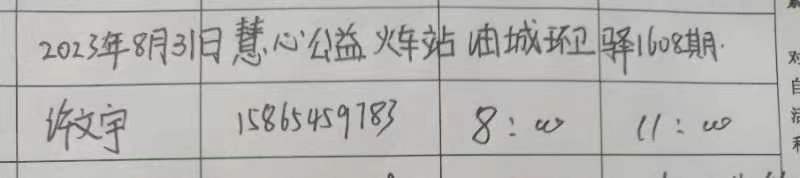 2023年8月31日慧心公益火车站油城环卫驿1608期.
许文宇 15865459783 8:00 11:00
对
自
活